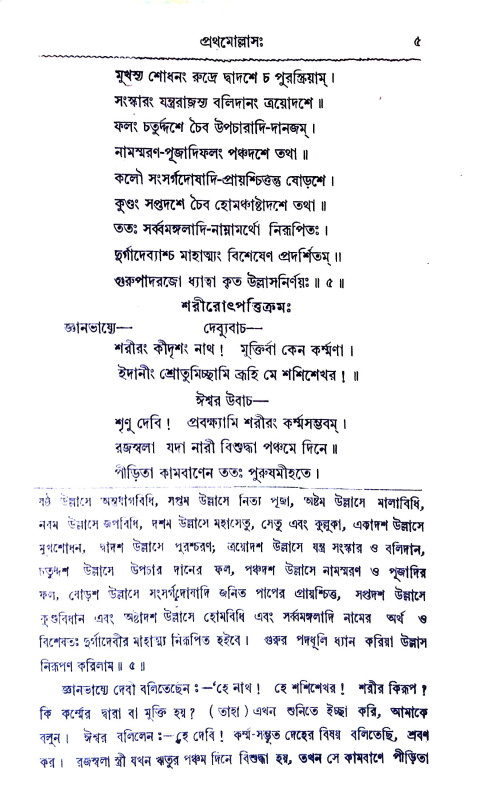 প্রথমোল্লাসঃ ৫
মুখস্য শোধনং রুদ্রে দ্বাদশে চ পুরস্ক্রিয়াম্।
সংস্কারং যন্ত্ররাজস্য বলিদানং ত্রয়োদশে॥
ফলং চতুর্দ্দশে চৈব উপচারাদি-দানজম্।
নামস্মরণ-পূজাদিফলং পঞ্চদশে তথা॥
কলৌ সংসর্গদোষাদি-প্রায়শ্চিত্তন্তু ষোড়শে।
কুণ্ডং সপ্তদশে চৈব হোমঞ্চাষ্টাদশে তথা॥
ততঃ সর্ব্বমঙ্গলাদি-নাম্নামর্থো নিরূপিতঃ।
দুর্গাদেব্যাশ্চ মাহাত্ম্যং বিশেষেণ প্রদর্শিতম্॥
গুরুপাদরজো ধ্যাত্বা কৃত উল্লাসনির্ণয়ঃ॥ ৫॥
শরীরোৎপত্তিক্রমঃ
জ্ঞানভাষ্যে— দেব্যুবাচ—
শরীরং কীদৃশং নাথ! মুক্তির্বা কেন কর্ম্মণা।
ইদানীং শ্রোতুমিচ্ছামি ব্রূহি মে শশিশেখর!॥
ঈশ্বর উবাচ—
শৃণু দেবি! প্রবক্ষ্যামি শরীরং কর্ম্মসম্ভবম্।
রজস্বলা যদা নারী বিশুদ্ধা পঞ্চমে দিনে॥
পীড়িতা কামবাণেন ততঃ পুরুষমীহতে।
ষষ্ঠ উল্লাসে অন্তর্যাগবিধি, সপ্তম উল্লাসে নিত্য পূজা, অষ্টম উল্লাসে মালাবিধি,
নবম উল্লাসে জপবিধি, দশম উল্লাসে মহাসেতু, সেতু এবং কুল্লুকা, একাদশ উল্লাসে
মুখশোধন, দ্বাদশ উল্লাসে পুরশ্চরণ; ত্রয়োদশ উল্লাসে যন্ত্র সংস্কার ও বলিদান,
চতুর্দ্দশ উল্লাসে উপচার দানের ফল, পঞ্চদশ উল্লাসে নামস্মরণ ও পূজাদির
ফল, ষোড়শ উল্লাসে সংসর্গদোষাদি জনিত পাপের প্রায়শ্চিত্ত, সপ্তদশ উল্লাসে
কুণ্ডবিধান এবং অষ্টাদশ উল্লাসে হোমবিধি এবং সর্ব্বমঙ্গলাদি নামের অর্থ ও
বিশেষতঃ দুর্গাদেবীর মাহাত্ম্য নিরূপিত হইবে। গুরুর পদধূলি ধ্যান করিয়া উল্লাস
নিরূপণ করিলাম॥ ৫॥
জ্ঞানভাষ্যে দেবী বলিতেছেন:—'হে নাথ! হে শশিশেখর! শরীর কিরূপ?
কি কর্ম্মের দ্বারা বা মুক্তি হয়? (তাহা) এখন শুনিতে ইচ্ছা করি, আমাকে
বলুন। ঈশ্বর বলিলেন:—হে দেবি! কর্ম্ম-সম্ভূত দেহের বিষয় বলিতেছি, শ্রবণ
কর। রজস্বলা স্ত্রী যখন ঋতুর পঞ্চম দিনে বিশুদ্ধা হয়, তখন সে কামবাণে পীড়িতা